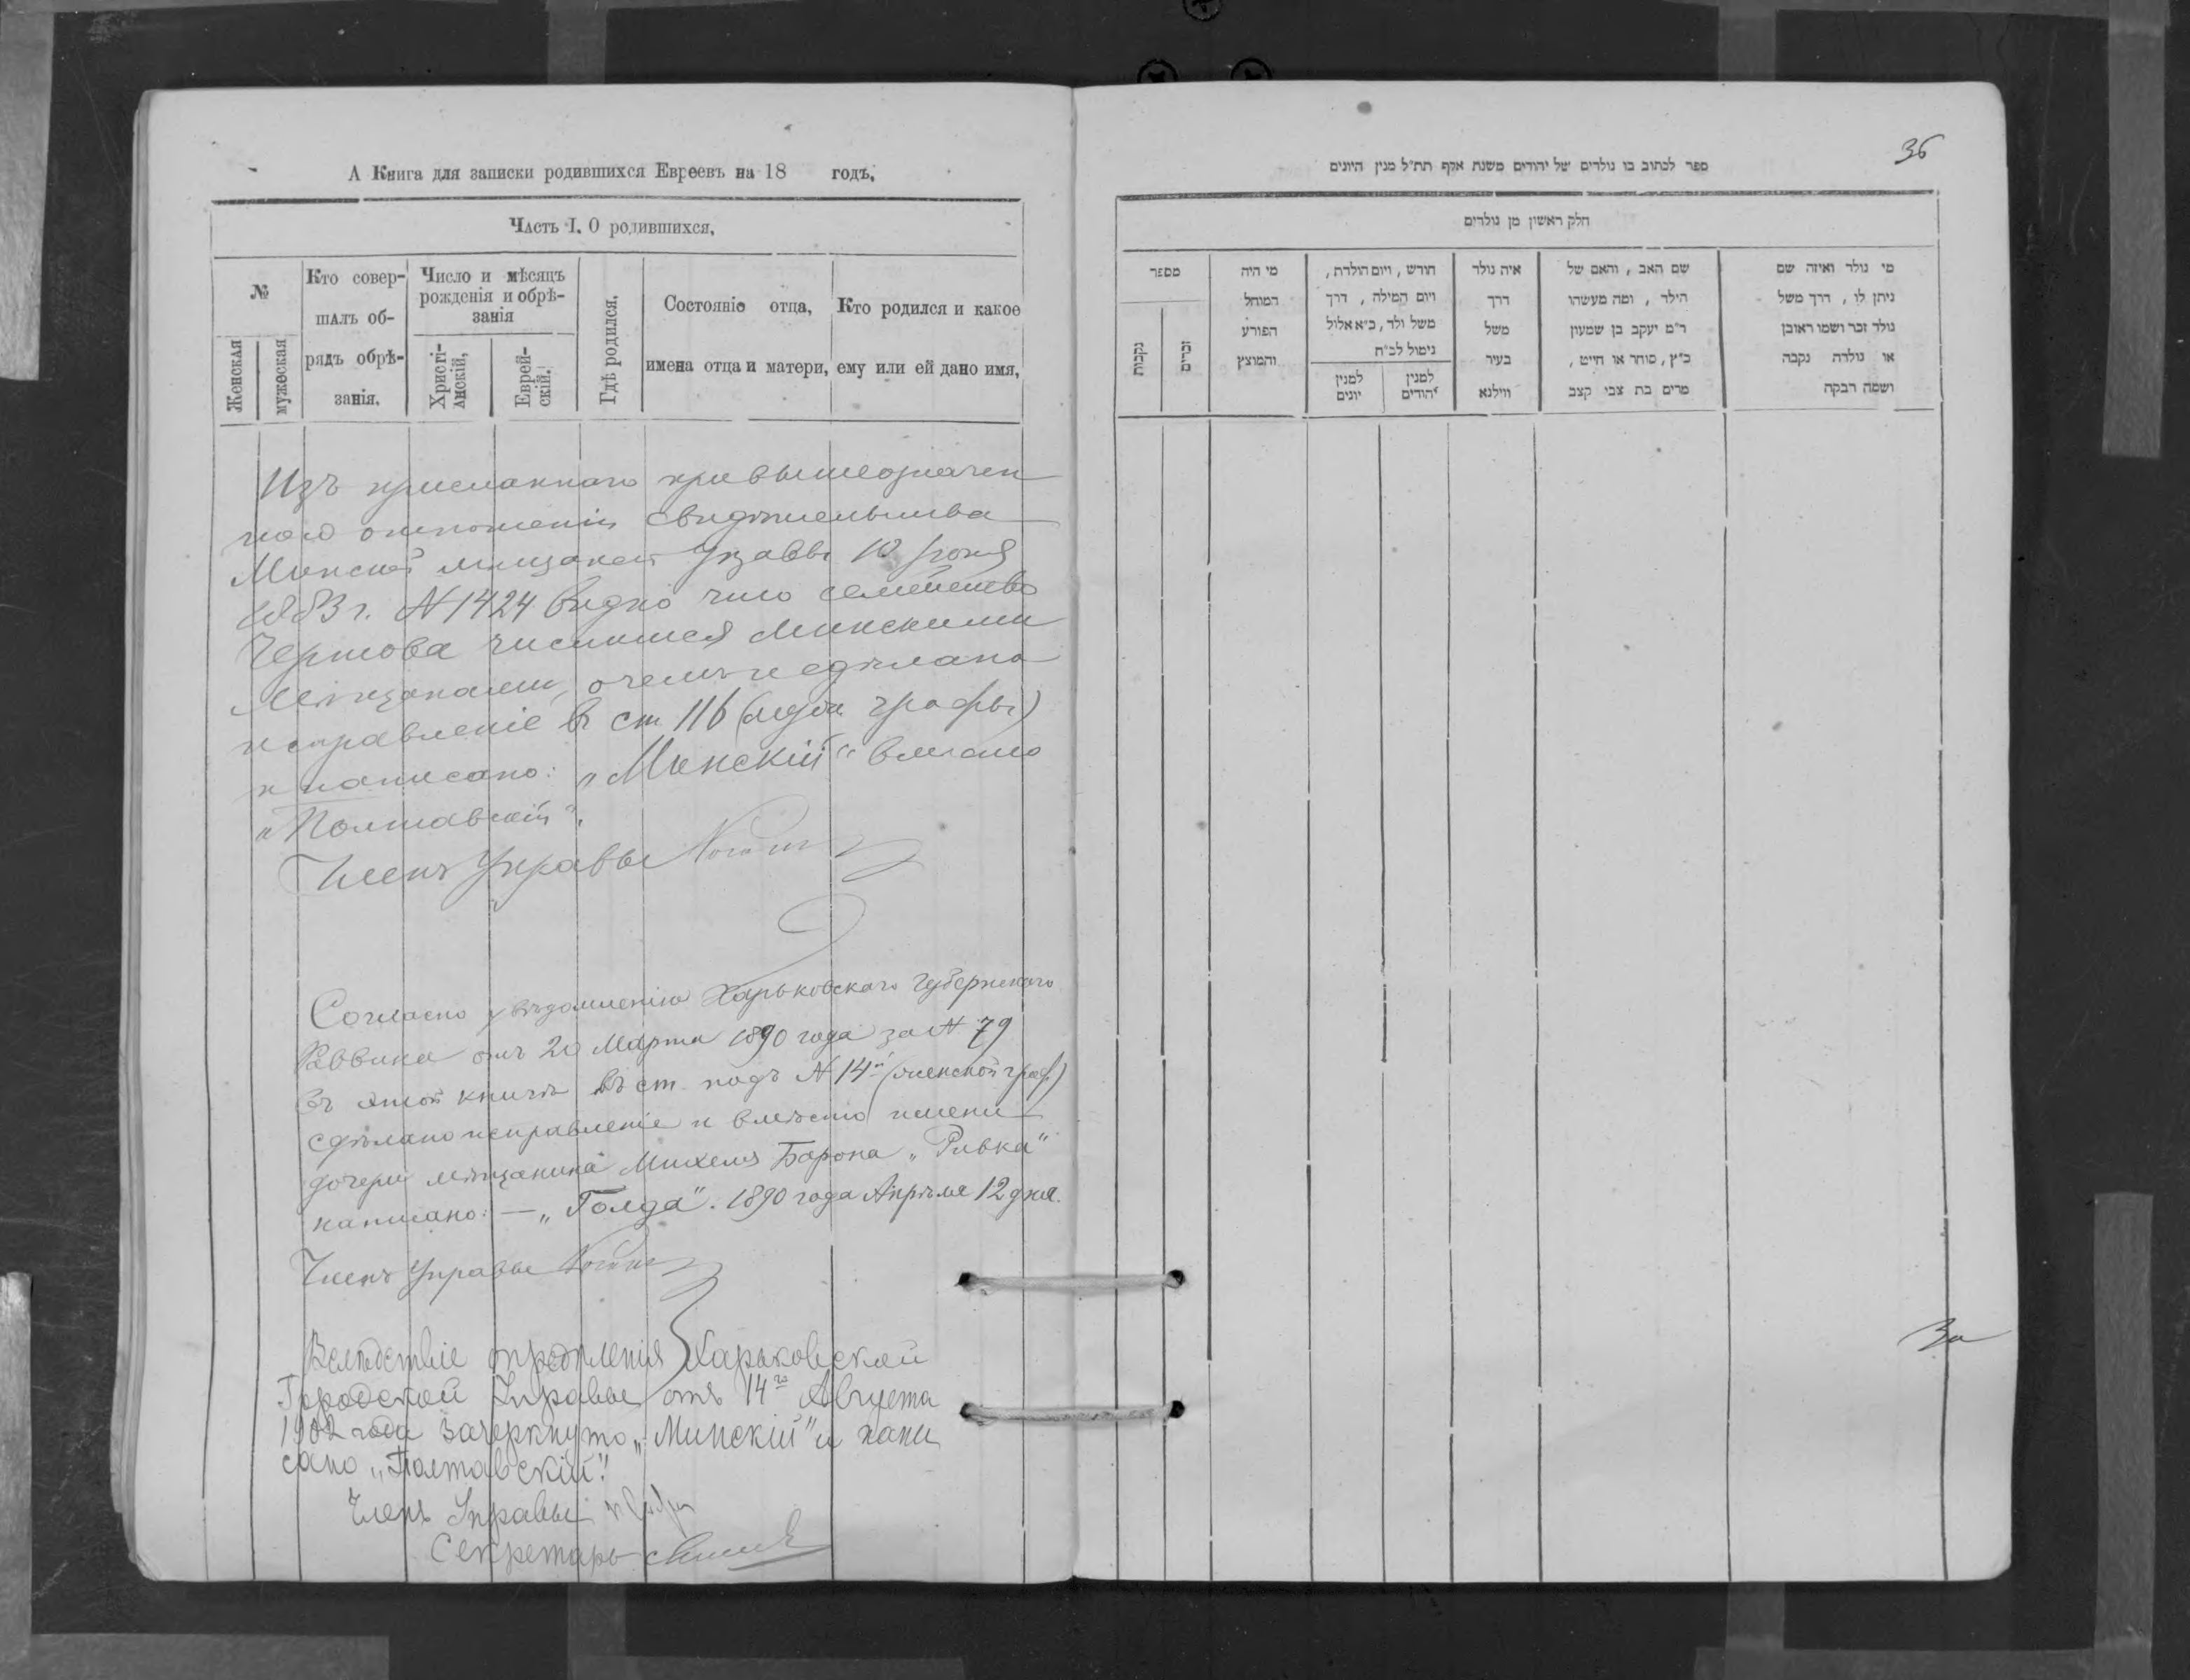 А Книга для записки родившихся Евреевъ на 18 годъ.
Часть I. О родившихся.
№
Женская
мужеская
Кто совер-
шалъ об-
рядъ обрѣ-
занія.
Число и мѣсяцъ
рожденія и обрѣ-
занія
Христі-
анскій,
Еврей-
скій.
Гдѣ родился.
Состояніе отца,
имена отца и матери,
Кто родился и какое
ему или ей дано имя,
Изъ присланнаго при вышеозначен
номъ отношеніи свидѣтельства
Минской мѣщанской Управы 10 Іюня
1883 г. № 1424 видно что семейство
Чертова числится Минскими
мѣщанами, о чемъ и сдѣлано
исправленіе въ ст 116 графы)
и написано: „Минскій" вмѣсто
„Полтавскій".
Членъ Управы
Согласно увѣдомленію Харьковскаго Губернскаго
Раввина отъ 20 Марта 1890 года за № 79
въ этой книгѣ въ ст. подъ № 14й (женской граф)
сдѣлано исправленіе и вмѣсто имени
дочери мѣщанина Михеля Барона „Ривка"
написано: — „Голда". 1890 года Апрѣля 12 дня.
Членъ Управы
Вслѣдствіе опредѣленія Харьковской
Городской Управы отъ 14го Августа
1902 года зачеркнуто „Минскій" и напи
сано „Полтавскій".
Членъ Управы
Секретарь
36
ספר לכתוב בו נולדים של יהודים משנת אלף תת״ל מנין היונים
חלק ראשון מן נולדים
מספר
נקבות
זכרים
מי היה
המוהל
הפורע
והמוצץ
חודש, ויום הולדת,
ויום המילה, דרך
משל ולד, כ״א אלול
נימול לכ״ח
למנין
יונים
למנין
יהודים
איה נולד
דרך
משל
בעיר
ווילנא
שם האב, והאם של
הילד, ומה מעשהו
ר״מ יעקב בן שמעון
כ״ץ, סוחר או חייט,
מרים בת צבי קצב
מי נולד ואיזה שם
ניתן לו, דרך משל
נולד זכר ושמו ראובן
או נולדה נקבה
ושמה רבקה
За